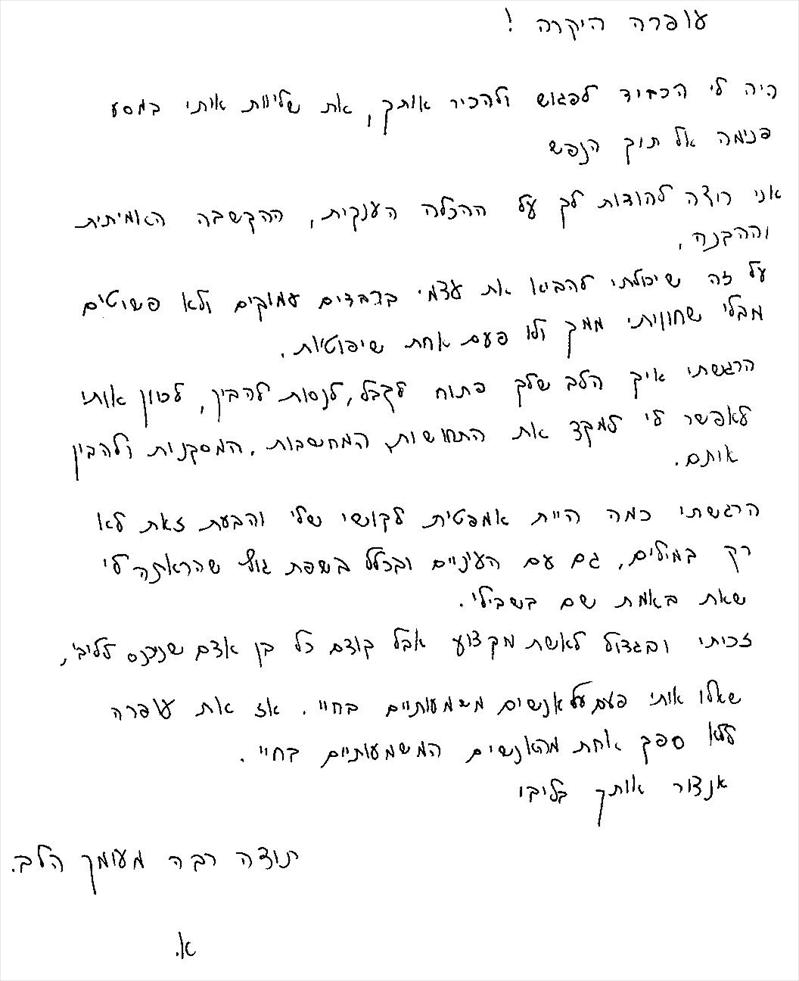 עופרה היקרה !
היה לי הכבוד לפגוש ולהכיר אותך, את שליוות אותי במסע
פנימה אל תוך הנפש
אני רוצה להודות לך על ההכלה הענקית, ההקשבה האמיתית
וההבנה,
על זה שיכולתי להביא את עצמי ברבדים עמוקים ולא פשוטים
מבלי שחוויתי ממך ולו פעם אחת שיפוטיות.
הרגשתי איך הלב שלך פתוח לקבל, לנסות להבין, לכוון אותי
לאפשר לי למקד את התחושות, המחשבות, המסקנות ולהבין
אותם.
הרגשתי כמה היית אמפטית לקושי שלי והבעת זאת לא
רק במילים, גם עם העיניים ובכלל בשפת גוף שהראתה לי
שאת באמת שם בשבילי.
זכיתי ובגדול לאשת מקצוע אבל קודם כל בן אדם שנכנס לליבי,
שאלו אותי פעם על אנשים משמעותיים בחיי. אז את עופרה
ללא ספק אחת מהאנשים המשמעותיים בחיי.
אנצור אותך בליבי
תודה רבה מעומק הלב.
א.